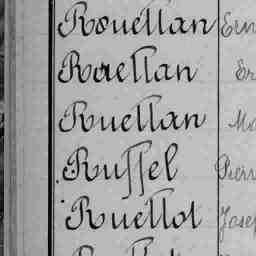 Rouellan Ern
Raellan Er
Ruellan Ma
Ruffel Pierr
Ruellot Josep